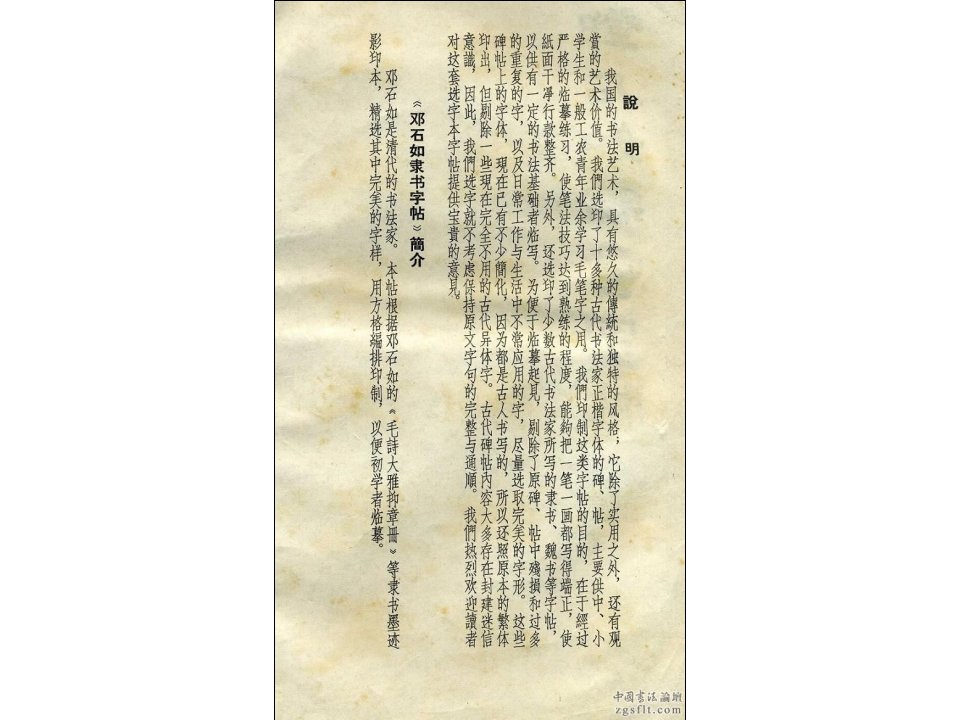 說　明
我国的书法艺术，具有悠久的傳統和独特的风格；它除了实用之外，还有观
賞的艺术价值。我們选印了十多种古代书法家正楷字体的碑、帖，主要供中、小
学生和一般工农青年业余学习毛笔字之用。我們印制这类字帖的目的，在于經过
严格的临摹练习，使笔法技巧达到熟练的程度，能夠把一笔一画都写得端正，使
紙面干凈行款整齐。另外，还选印了少数古代书法家所写的隶书、魏书等字帖，
以供有一定的书法基础者临写。为便于临摹起見，剔除了原碑、帖中殘損和过多
的重复的字，以及日常工作与生活中不常应用的字，尽量选取完美的字形。这些
碑帖上的字体，現在已有不少簡化，因为都是古人书写的，所以还照原本的繁体
印出，但剔除一些現在完全不用的古代异体字。古代碑帖內容大多存在封建迷信
意識，因此，我們选字就不考虑保持原文字句的完整与通順。我們热烈欢迎讀者
对这套选字本字帖提供宝貴的意見。
《邓石如隶书字帖》簡介
邓石如是清代的书法家。本帖根据邓石如的《毛詩大雅抑章冊》等隶书墨迹
影印本，精选其中完美的字样，用方格編排印制，以便初学者临摹。
中國書法論壇
zgsflt.com